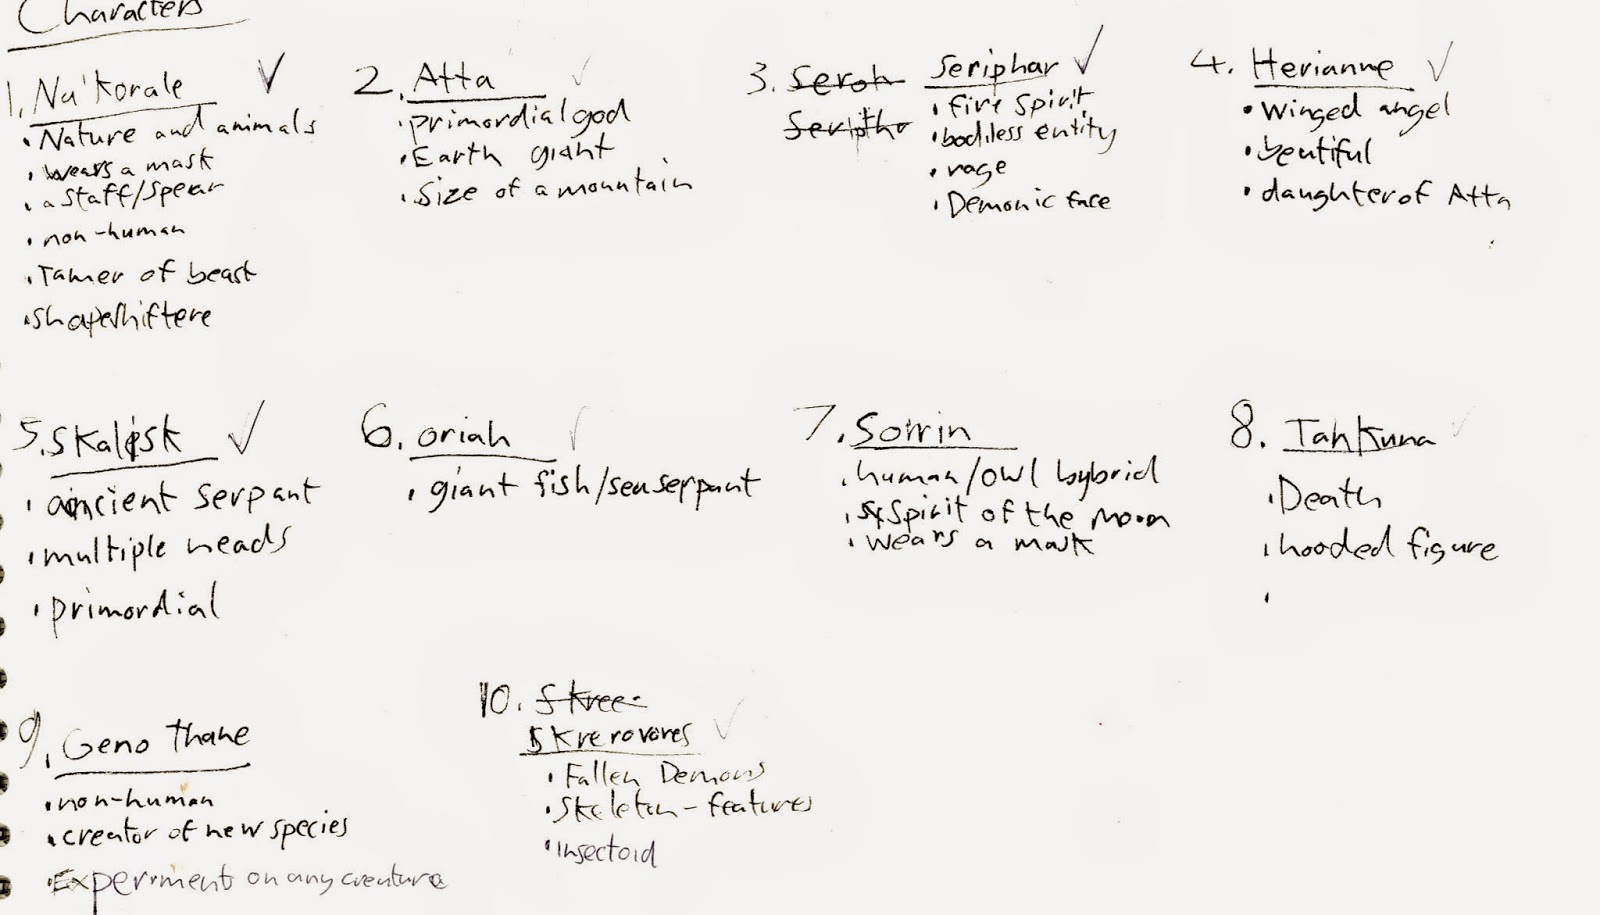 Characters
1. Na'Korale
• Nature and animals
• wears a mask
• a staff/spear
• non-human
• Tamer of beast
• shapeshiftere
2. Atta
• primordial god
• Earth giant
• Size of a mountain
3. Seroh Seriphar
Seripthr
• fire spirit
• bodiless entity
• rage
• Demonic face
4. Herianne
• Winged angel
• beutiful
• daughter of Atta
5. Skalisk
• ancient serpant
• multiple heads
• primordial
6. oriah
• giant fish/sea serpant
7. Sorrin
• human/owl hybrid
• Spirit of the moon
• wears a mask
8. Tahkuna
• Death
• hooded figure
•
9. Geno Thane
• non-human
• creator of new species
• Experiment on any creature
10. Skree
Skrerovores
• Fallen Demons
• Skeleton-features
• insectoid